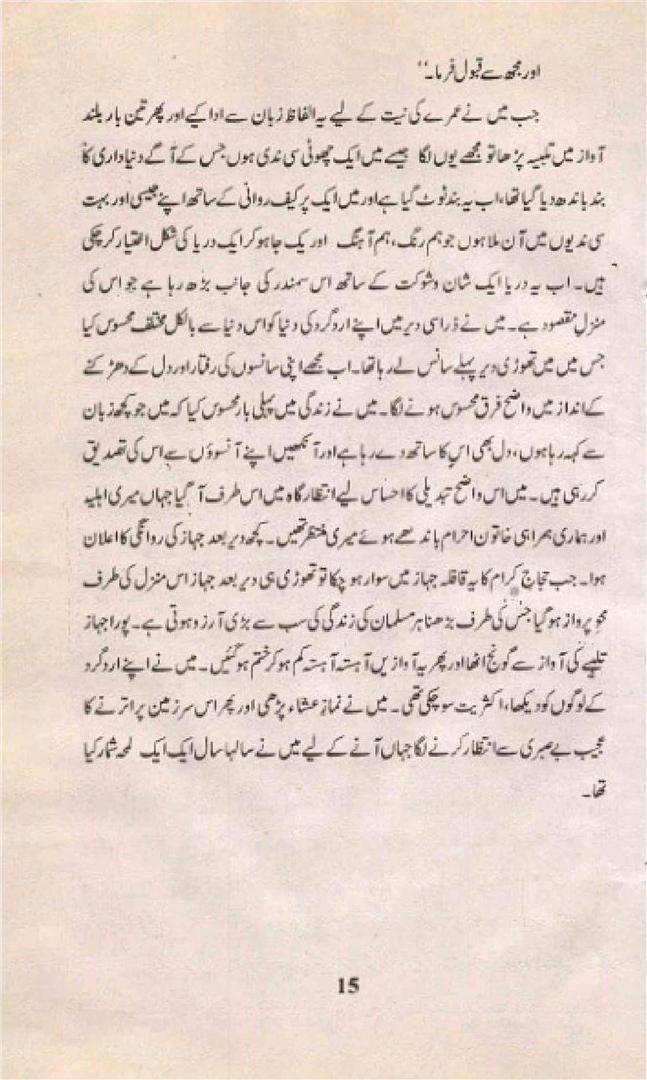 اور مجھ سے قبول فرما۔‘‘
جب میں نے عمرے کی نیت کے لیے یہ الفاظ زبان سے ادا کیے اور پھر تین بار بلند
آواز میں تلبیہ پڑھا تو مجھے یوں لگا جیسے میں ایک چھوٹی سی ندی ہوں جس کے آگے دنیاداری کا
بند باندھ دیا گیا تھا، اب یہ بند ٹوٹ گیا ہے اور میں ایک پرکیف روانی کے ساتھ اپنے جیسی اور بہت
سی ندیوں میں آن ملا ہوں جو ہم رنگ، ہم آہنگ اور یک جا ہو کر ایک دریا کی شکل اختیار کر چکی
ہیں۔ اب یہ دریا ایک شان و شوکت کے ساتھ اس سمندر کی جانب بڑھ رہا ہے جو اس کی
منزلِ مقصود ہے۔ میں نے ذرا سی دیر میں اپنے اردگرد کی دنیا کو اس دنیا سے بالکل مختلف محسوس کیا
جس میں میں تھوڑی دیر پہلے سانس لے رہا تھا۔ اب مجھے اپنی سانسوں کی رفتار اور دل کے دھڑکنے
کے انداز میں واضح فرق محسوس ہونے لگا۔ میں نے زندگی میں پہلی بار محسوس کیا کہ میں جو کچھ زبان
سے کہہ رہا ہوں، دل بھی اس کا ساتھ دے رہا ہے اور آنکھیں اپنے آنسوؤں سے اس کی تصدیق
کر رہی ہیں۔ میں اس واضح تبدیلی کا احساس لیے انتظار گاہ میں اس طرف آ گیا جہاں میری اہلیہ
اور ہماری ہمراہی خاتون احرام باندھے ہوئے میری منتظر تھیں۔ کچھ دیر بعد جہاز کی روانگی کا اعلان
ہوا۔ جب حجاج کرام کا یہ قافلہ جہاز میں سوار ہو چکا تو تھوڑی ہی دیر بعد جہاز اس منزل کی طرف
محوِ پرواز ہو گیا جس کی طرف بڑھنا ہر مسلمان کی زندگی کی سب سے بڑی آرزو ہوتی ہے۔ پورا جہاز
تلبیے کی آواز سے گونج اٹھا اور پھر یہ آوازیں آہستہ آہستہ کم ہو کر ختم ہو گئیں۔ میں نے اپنے اردگرد
کے لوگوں کو دیکھا، اکثریت سو چکی تھی۔ میں نے نمازِ عشاء پڑھی اور پھر اس سرزمین پر اترنے کا
عجیب بے صبری سے انتظار کرنے لگا جہاں آنے کے لیے میں نے سالہا سال ایک ایک لمحہ شمار کیا
تھا۔
15